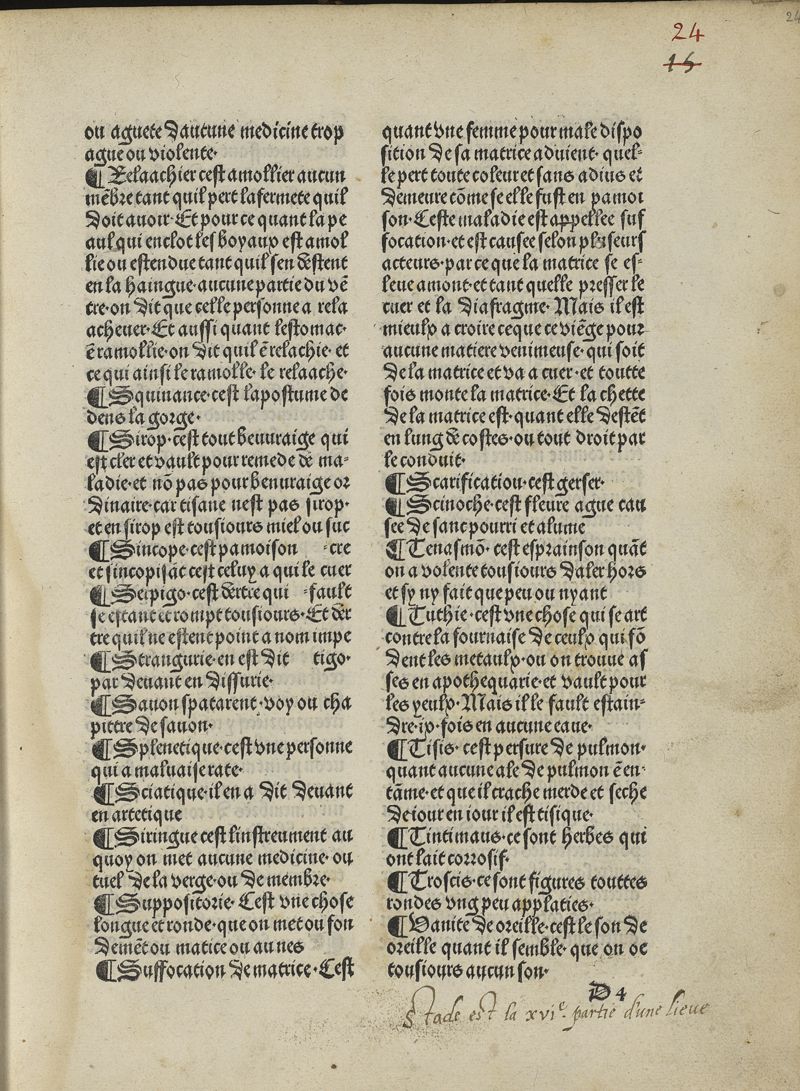 24
24
15
ou aguete daucune medicine trop
ague ou violente·
¶ Relaachier cest amollier aucun
mẽbre tant quil pert la fermete quil
doit auoir· Et pour ce quant la pe
aul qui enclot les boyaux est amol
lie ou estendue tant quil sen destent
en la haingue· aucune partie du vẽ
tre· on dit que celle personne a rela
acheuer· Et aussi quant lestomac·
ẽ ramollie· on dit quil ẽ relachie· et
ce qui ainsi le ramolle· le relaache·
¶ Squinance· cest lapostume de
dens la gorge·
¶ Sirop· cest tout beuuraige qui
est cler et vault pour remede de ma-
ladie· et nõ pas pour beuuraige or
dinaire· car tisane nest pas sirop·
et en sirop est tousiours miel ou suc
¶ Sincope· cest pamoison ·cre
et sincopisãt cest celuy a qui le cuer
¶ Serpigo· cest dertre qui ·fault
se estant et rompt tousiours· Et der
tre quil ne estent point a nom impe
¶ Strangurie· en est dit tigo·
par deuant en dissurie·
¶ Sauon spatarent· voy ou cha
pittre de sauon·
¶ Splenetique· cest vne personne
qui a maluaise rate·
¶ Sciatique· il en a dit deuant
en artetique
¶ Siringue cest linstreument au
quoy on met aucune medicine· ou
tuel de la verge· ou de membre·
¶ Suppositorie· Cest vne chose
longue et ronde· que on met ou fon
demẽt ou matice ou au nes
¶ Suffocation de matrice· Cest
quant vne femme pour male dispo
sition de sa matrice aduient· quel-
le pert toute coleur et sans adius et
demeure cõme se elle fust en pamoi
son· Ceste maladie est appellee suf
focation· et est causee selon pluseurs
acteurs· par ce que la matrice se es-
leue amont· et tant quelle presser le
cuer et la diafragme· Mais il est
mieulx a croire ce que ce viẽge pour
aucune matiere venimeuse· qui soit
de la matrice et va a cuer· et toutte
fois monte la matrice· Et la chette
de la matrice est· quant elle destẽt
en lung de costes· ou tout droit par
le conduit·
¶ Scarification· cest gerser·
¶ Scinoche· cest fleure ague cau
see de sanc pourri et alume
¶ Tenasmõ· cest esprainson quãt
on a volente tousiours daler hors
et sy ny fait que peu ou nyant
¶ Tuthie· cest vne chose qui se art
contre la fournaise de ceulx qui fõ
dent les metaulx· ou on trouue as
ses en apothequarie· et vault pour
les yeulx· Mais il le fault estain-
dre· ix· fois en aucune eaue·
¶ Tisis· cest persure de pulmon·
quant aucune ale de pulmon ẽ en-
tãme· et que il crache merde et seche
de iour en iour il est tisique·
¶ Tintimaus· ce sont herbes qui
ont lait corrosif·
¶ Troscis· ce sont figures touttes
rondes vng peu applaties·
¶ Vanite de oreille· cest le son de
oreille quant il semble· que on oe
tousiours aucun son·
D 4
Stade est la xvi^e. partie d'une lieue